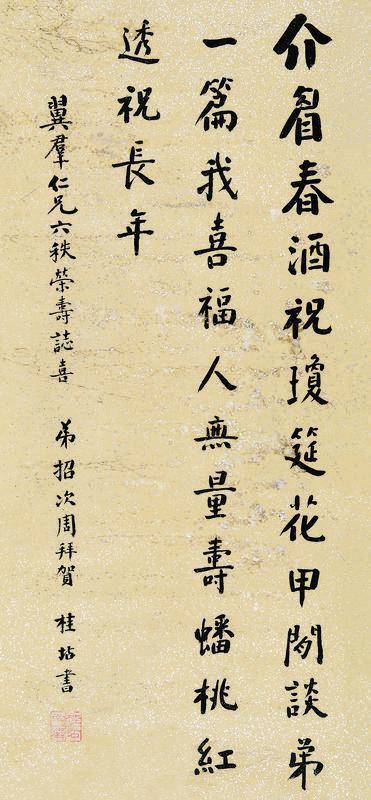 介眉春酒祝瓊筵花甲閒談弟
一篇我喜福人無量壽蟠桃紅
透祝長年
翼羣仁兄六秩榮壽誌喜
弟招次周拜賀 桂坫書